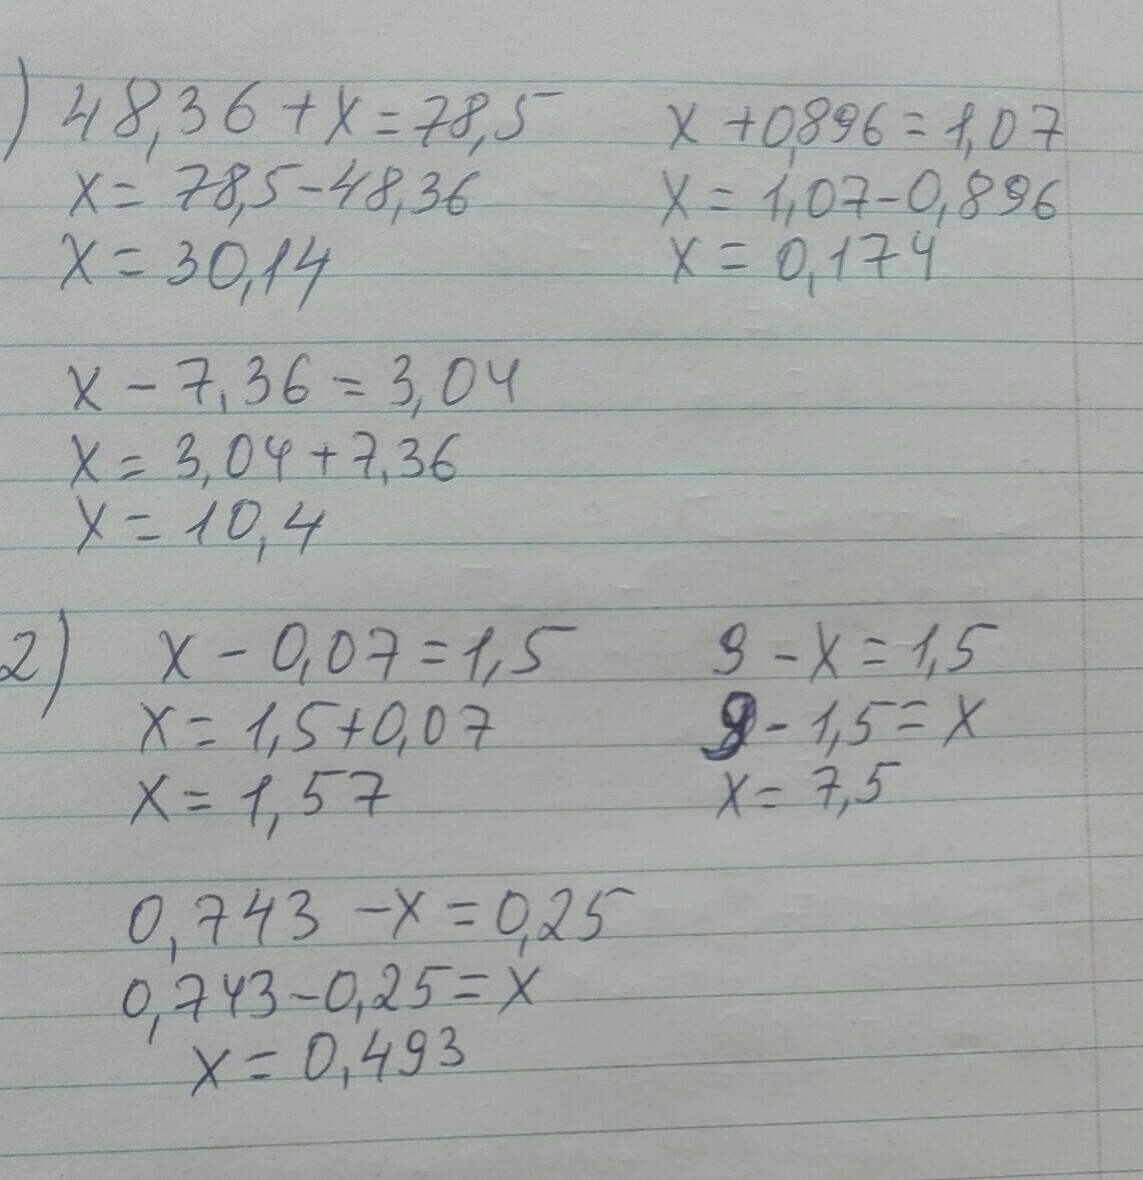 ) 48,36+x=78,5
x=78,5-48,36
x=30,14
x+0,896=1,07
x=1,07-0,896
x=0,174
x-7,36=3,04
x=3,04+7,36
x=10,4
2) x-0,07=1,5
x=1,5+0,07
x=1,57
9-x=1,5
9-1,5=x
x=7,5
0,743-x=0,25
0,743-0,25=x
x=0,493